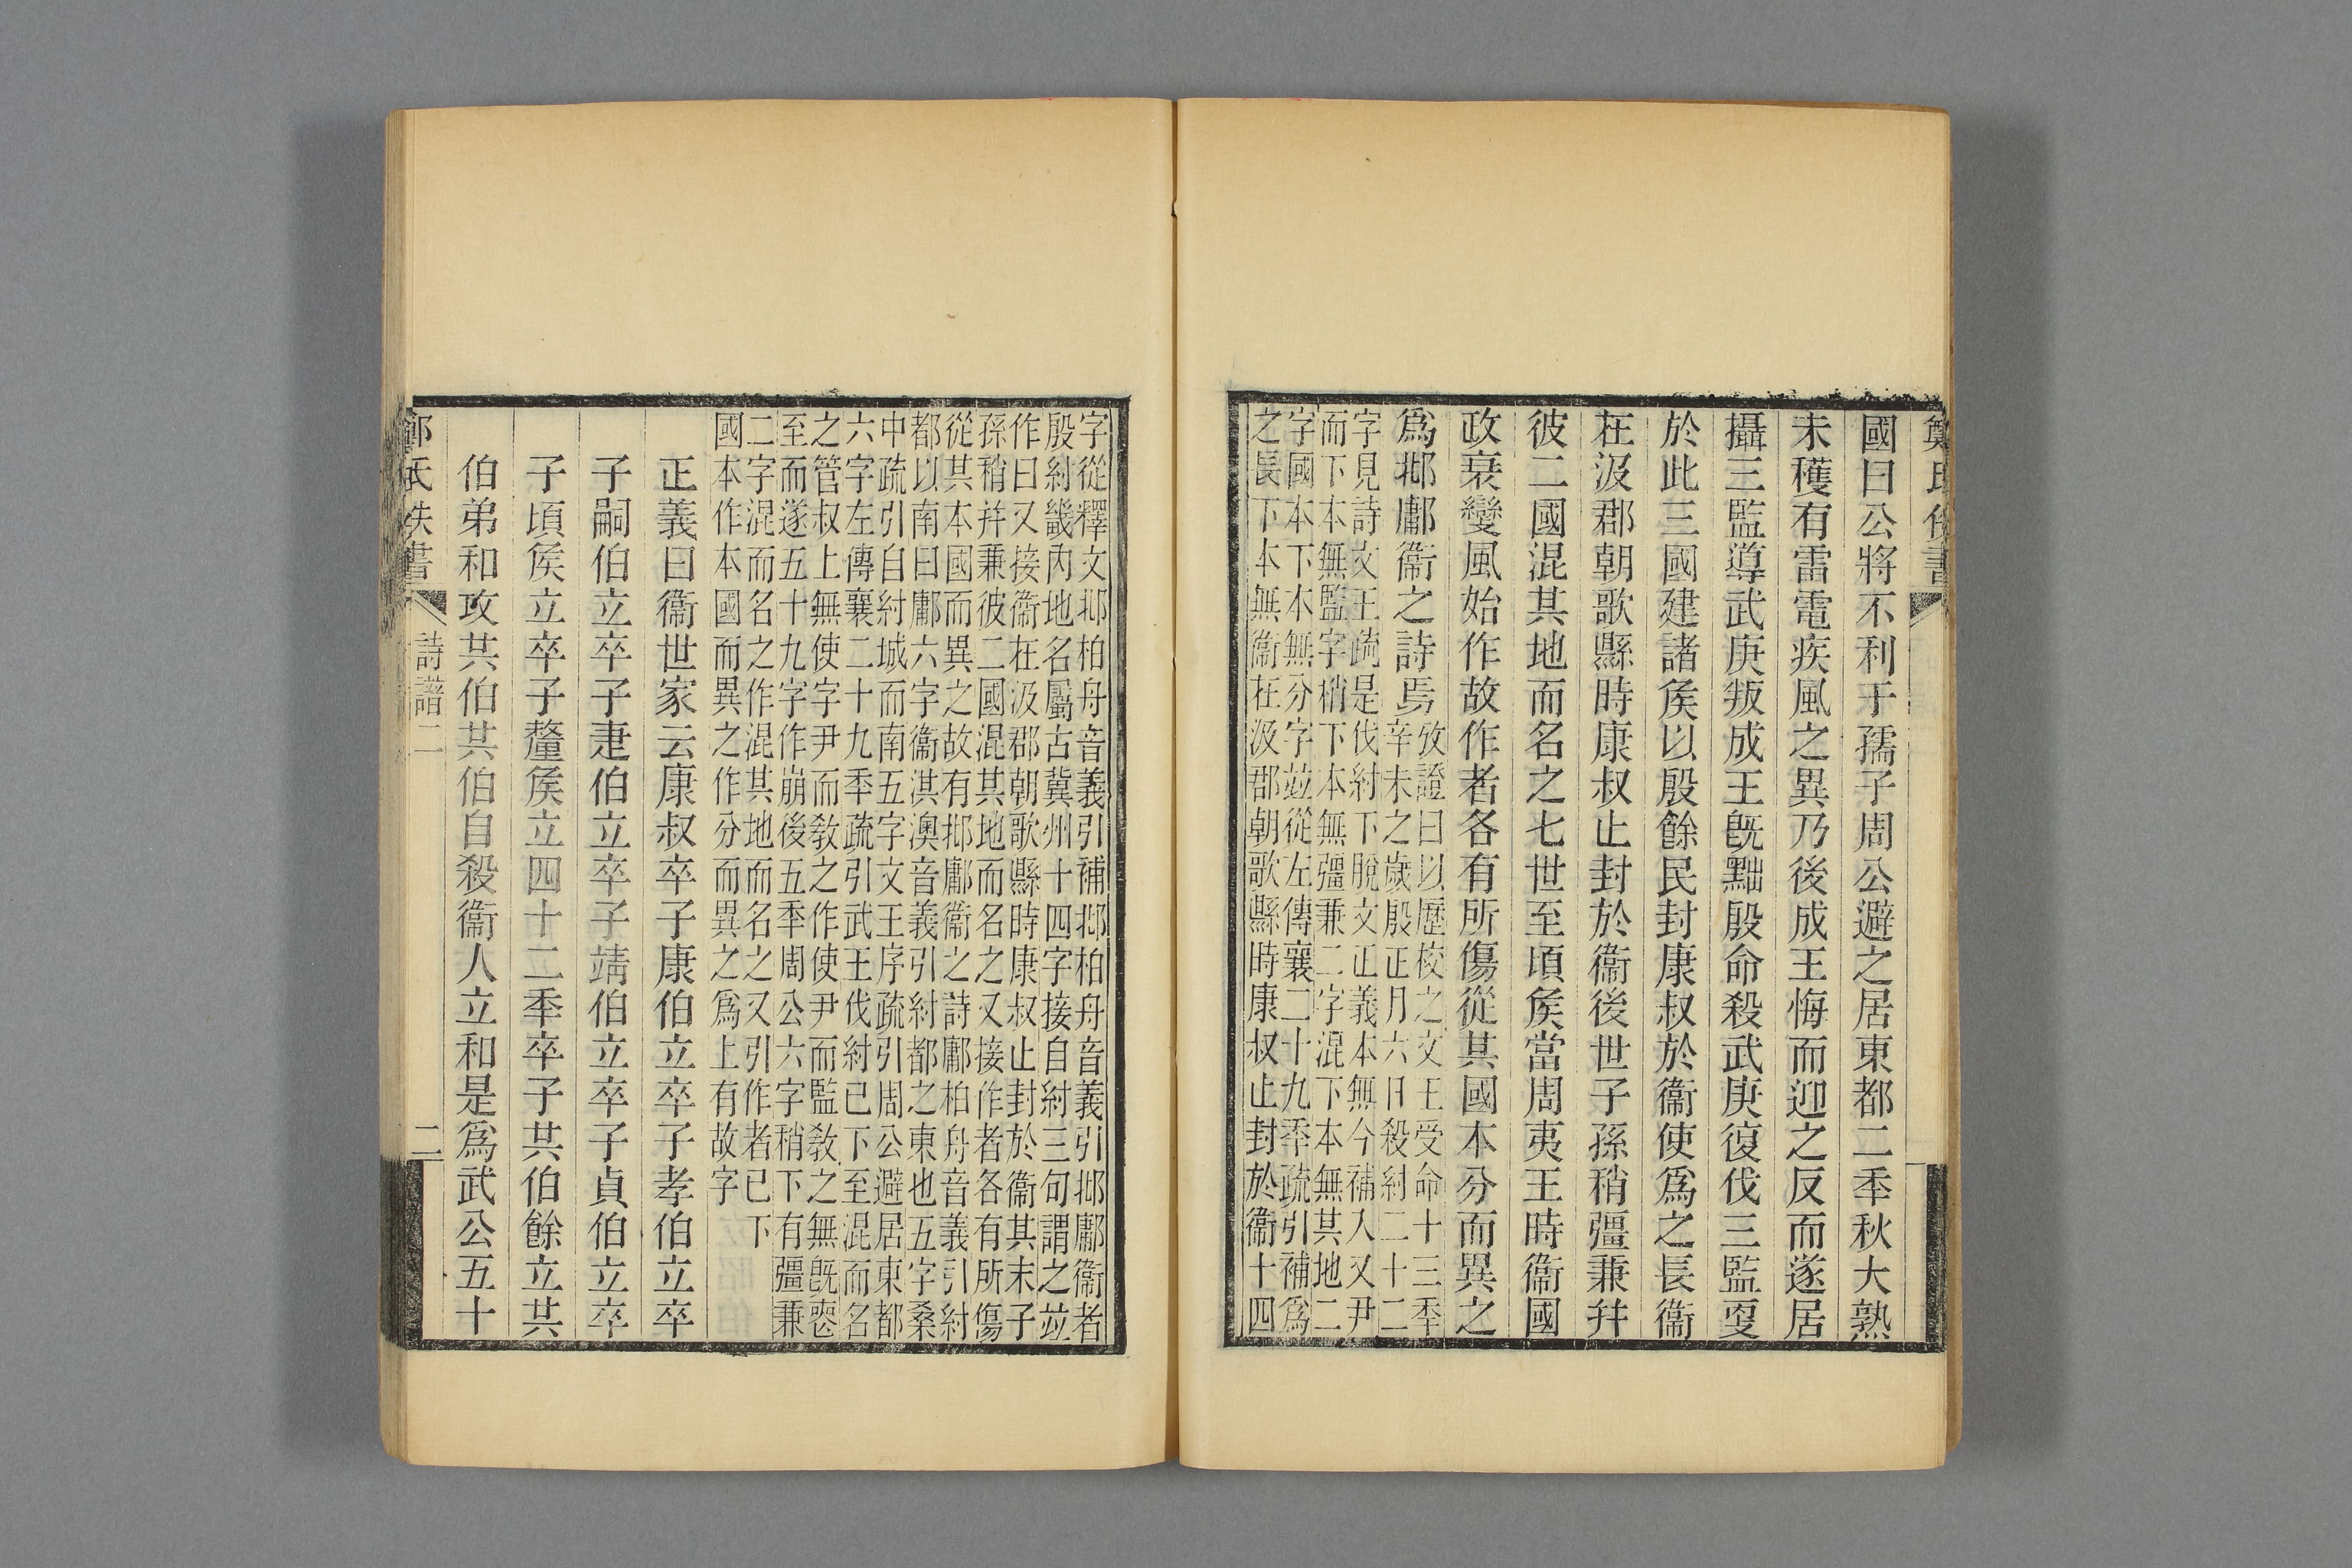 鄭氏佚書
國曰公將不利于孺子周公避之居東都二秊秋大熟
未穫有雷電疾風之異乃後成王悔而迎之反而遂居
攝三監導武庚叛成王旣黜殷命殺武庚復伐三監㪅
於此三國建諸矦以殷餘民封康叔於衞使爲之長衞
在汲郡朝歌縣時康叔止封於衞後世子孫稍彊兼幷
彼二國混其地而名之七世至頃矦當周夷王時衞國
政衰變風始作故作者各有所傷從其國本分而異之
爲邶鄘衞之詩焉
攷證曰以歷校之文王受命十三秊
辛未之歲殷正月六日殺紂二十二
字見詩文王疏是伐紂下脫文正義本無今補入又尹
而下本無監字稍下本無彊兼二字混下本無其地二
字國本下本無分字竝從左傳襄二十九秊疏引補爲
之長下本無衞在汲郡朝歌縣時康叔止封於衞十四
字從釋文邶柏舟音義引補邶柏舟音義引邶鄘衞者
殷紂畿內地名屬古冀州十四字接自紂三句謂之竝
作曰又接衞在汲郡朝歌縣時康叔止封於衞其末子
孫稍幷兼彼二國混其地而名之又接作者各有所傷
從其本國而異之故有邶鄘衞之詩鄘柏舟音義引紂
都以南曰鄘六字衞淇澳音義引紂都之東也五字桑
中疏引自紂城而南五字文王序疏引周公避居東都
六字左傳襄二十九秊疏引武王伐紂已下至混而名
之管叔上無使字尹而敎之作使尹而監敎之無旣喪
至而遂五十九字作崩後五秊周公六字稍下有彊兼
二字混而名之作混其地而名之又引作者已下
國本作本國而異之作分而異之爲上有故字
正義曰衞世家云康叔卒子康伯立卒子孝伯立卒
子嗣伯立卒子疌伯立卒子靖伯立卒子貞伯立卒
子頃矦立卒子釐矦立四十二秊卒子共伯餘立共
伯弟和攻共伯共伯自殺衞人立和是爲武公五十
鄭氏佚書
詩譜二
二